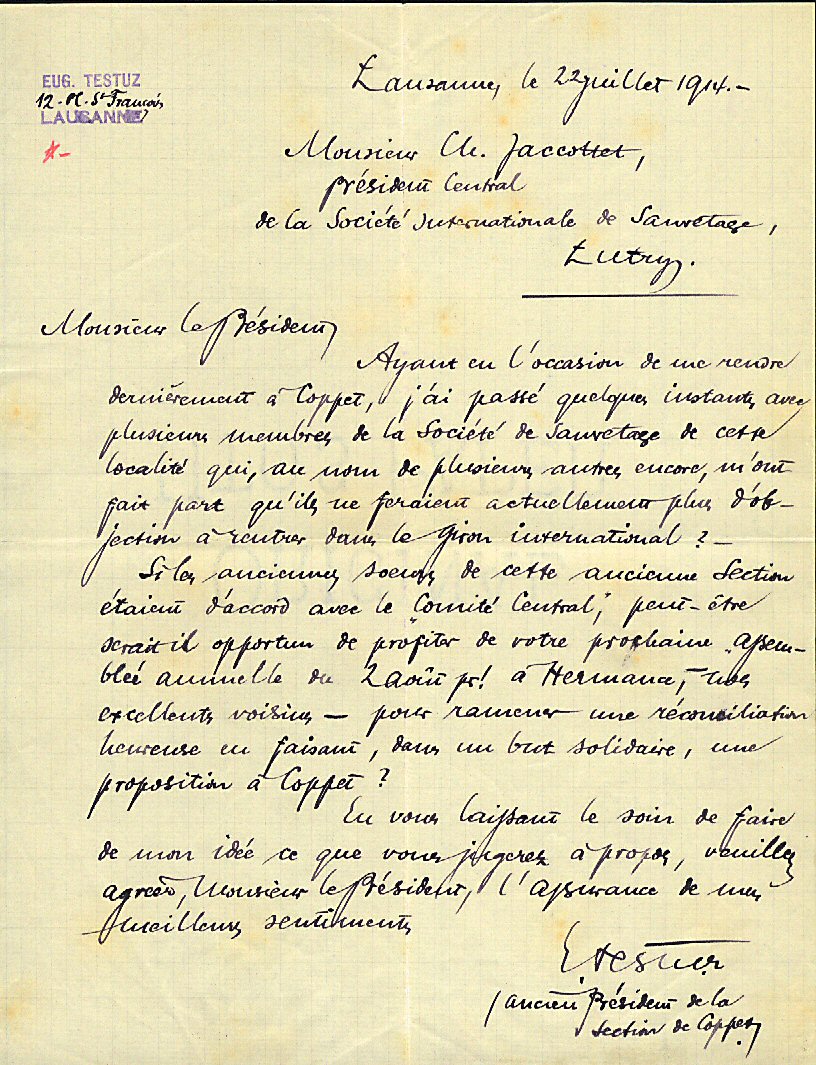 EUG. TESTUZ
12. Pl. St François
LAUSANNE
Lausanne, le 22 juillet 1914. –
Monsieur Ch. Jaccottet,
président Central
de la Société Internationale de Sauvetage,
Lutry.
Monsieur le Président,
Ayant eu l'occasion de me rendre
dernièrement à Coppet, j'ai passé quelques instants avec
plusieurs membres de la Société de Sauvetage de cette
localité qui, au nom de plusieurs autres encore, m'ont
fait part qu'ils ne feraient actuellement plus d'ob-
jection à rentrer dans le giron international ? –
Si les anciennes soeurs de cette ancienne Section
étaient d'accord avec le "Comité Central", peut-être
serait il opportun de profiter de votre prochaine "assem-
blée annuelle du 2 août pr! à Hermance, – nos
excellents voisins – pour ramener une réconciliation
heureuse en faisant, dans un but solidaire, une
proposition à Coppet ?
En vous laissant le soin de faire
de mon idée ce que vous jugerez à propos, veuillez
agréer, Monsieur le Président, l'assurance de mes
meilleurs sentiments
E. Testuz
ancien Président de la
Section de Coppet,